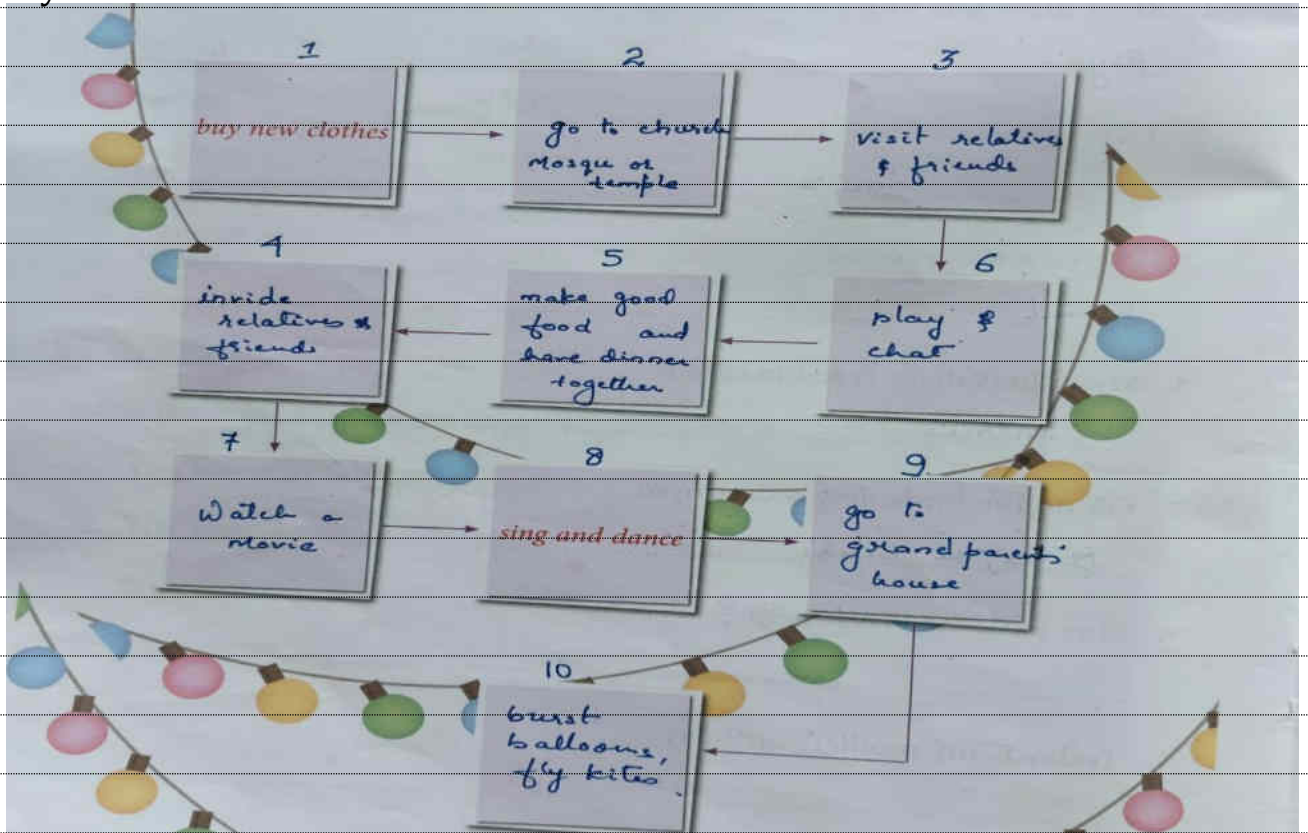 1
2
3
buy new clothes
go to church
Mosque or
temple
visit relatives
& friends
4
5
6
invide
relatives &
friends
make good
food and
have dinner
together
play &
chat
7
8
9
Watch a
Movie
sing and dance
go to
grand parents'
house
10
burst
balloons,
fly kites.